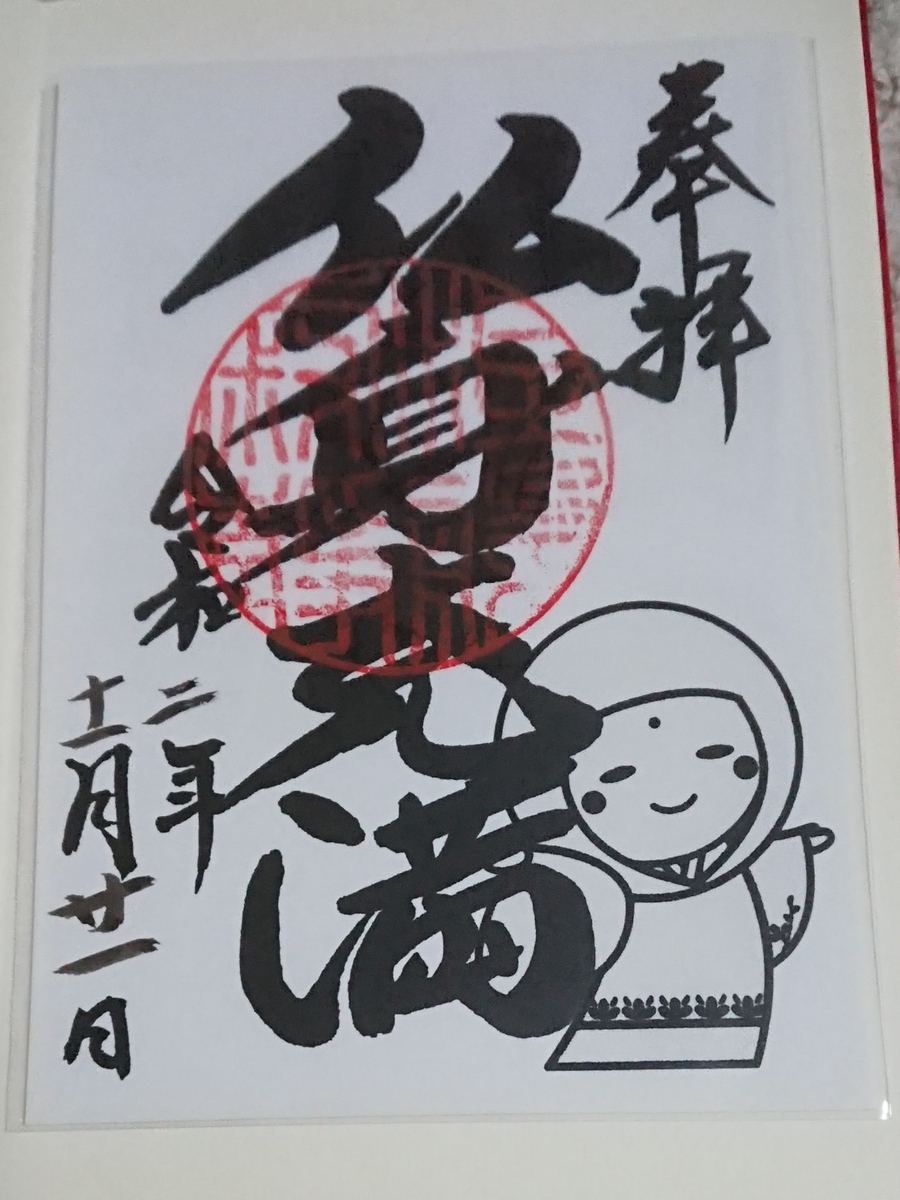 奉拝
仏身充満
令和二年
十二月廿一日